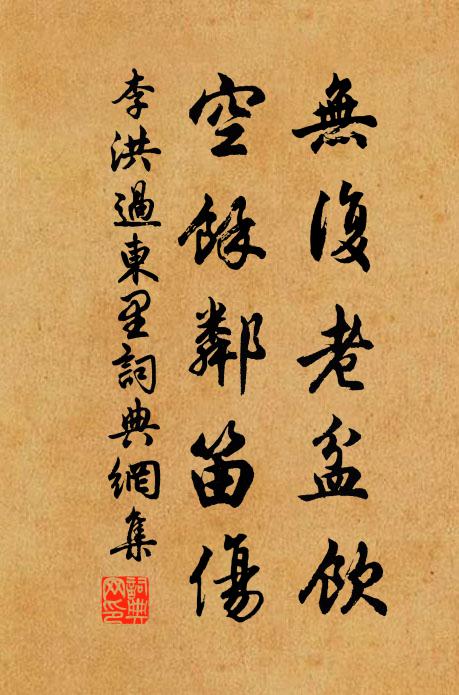 無復老盆飲
空餘鄰笛傷
李洪過東里詞典網集
詞典网印